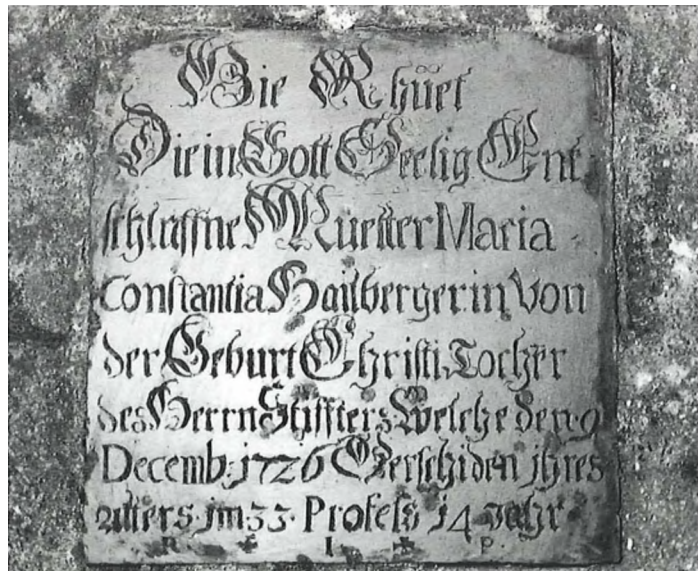 Hie Rhüet
Die in Gott Seelig Ent
schlaffne Muetter Maria
Constantia Hailbergerin Von
der Geburt Christi Tochter
des Herrn Stiffters Welche den 9
Decemb: 1726 Verschiden ihres
alters im 33. Profess 14 Jahr
R + I + P.